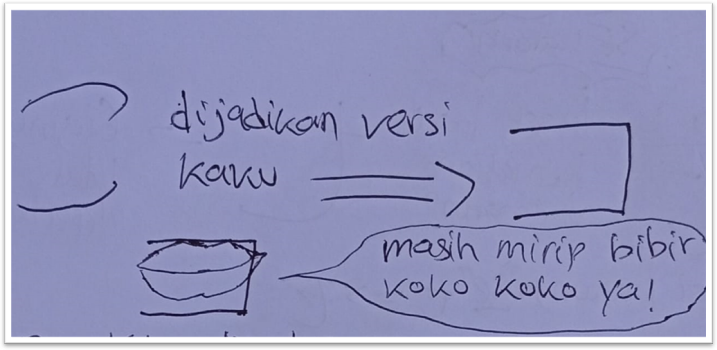 dijadikan versi
kaku
masih mirip bibir
koko koko ya!